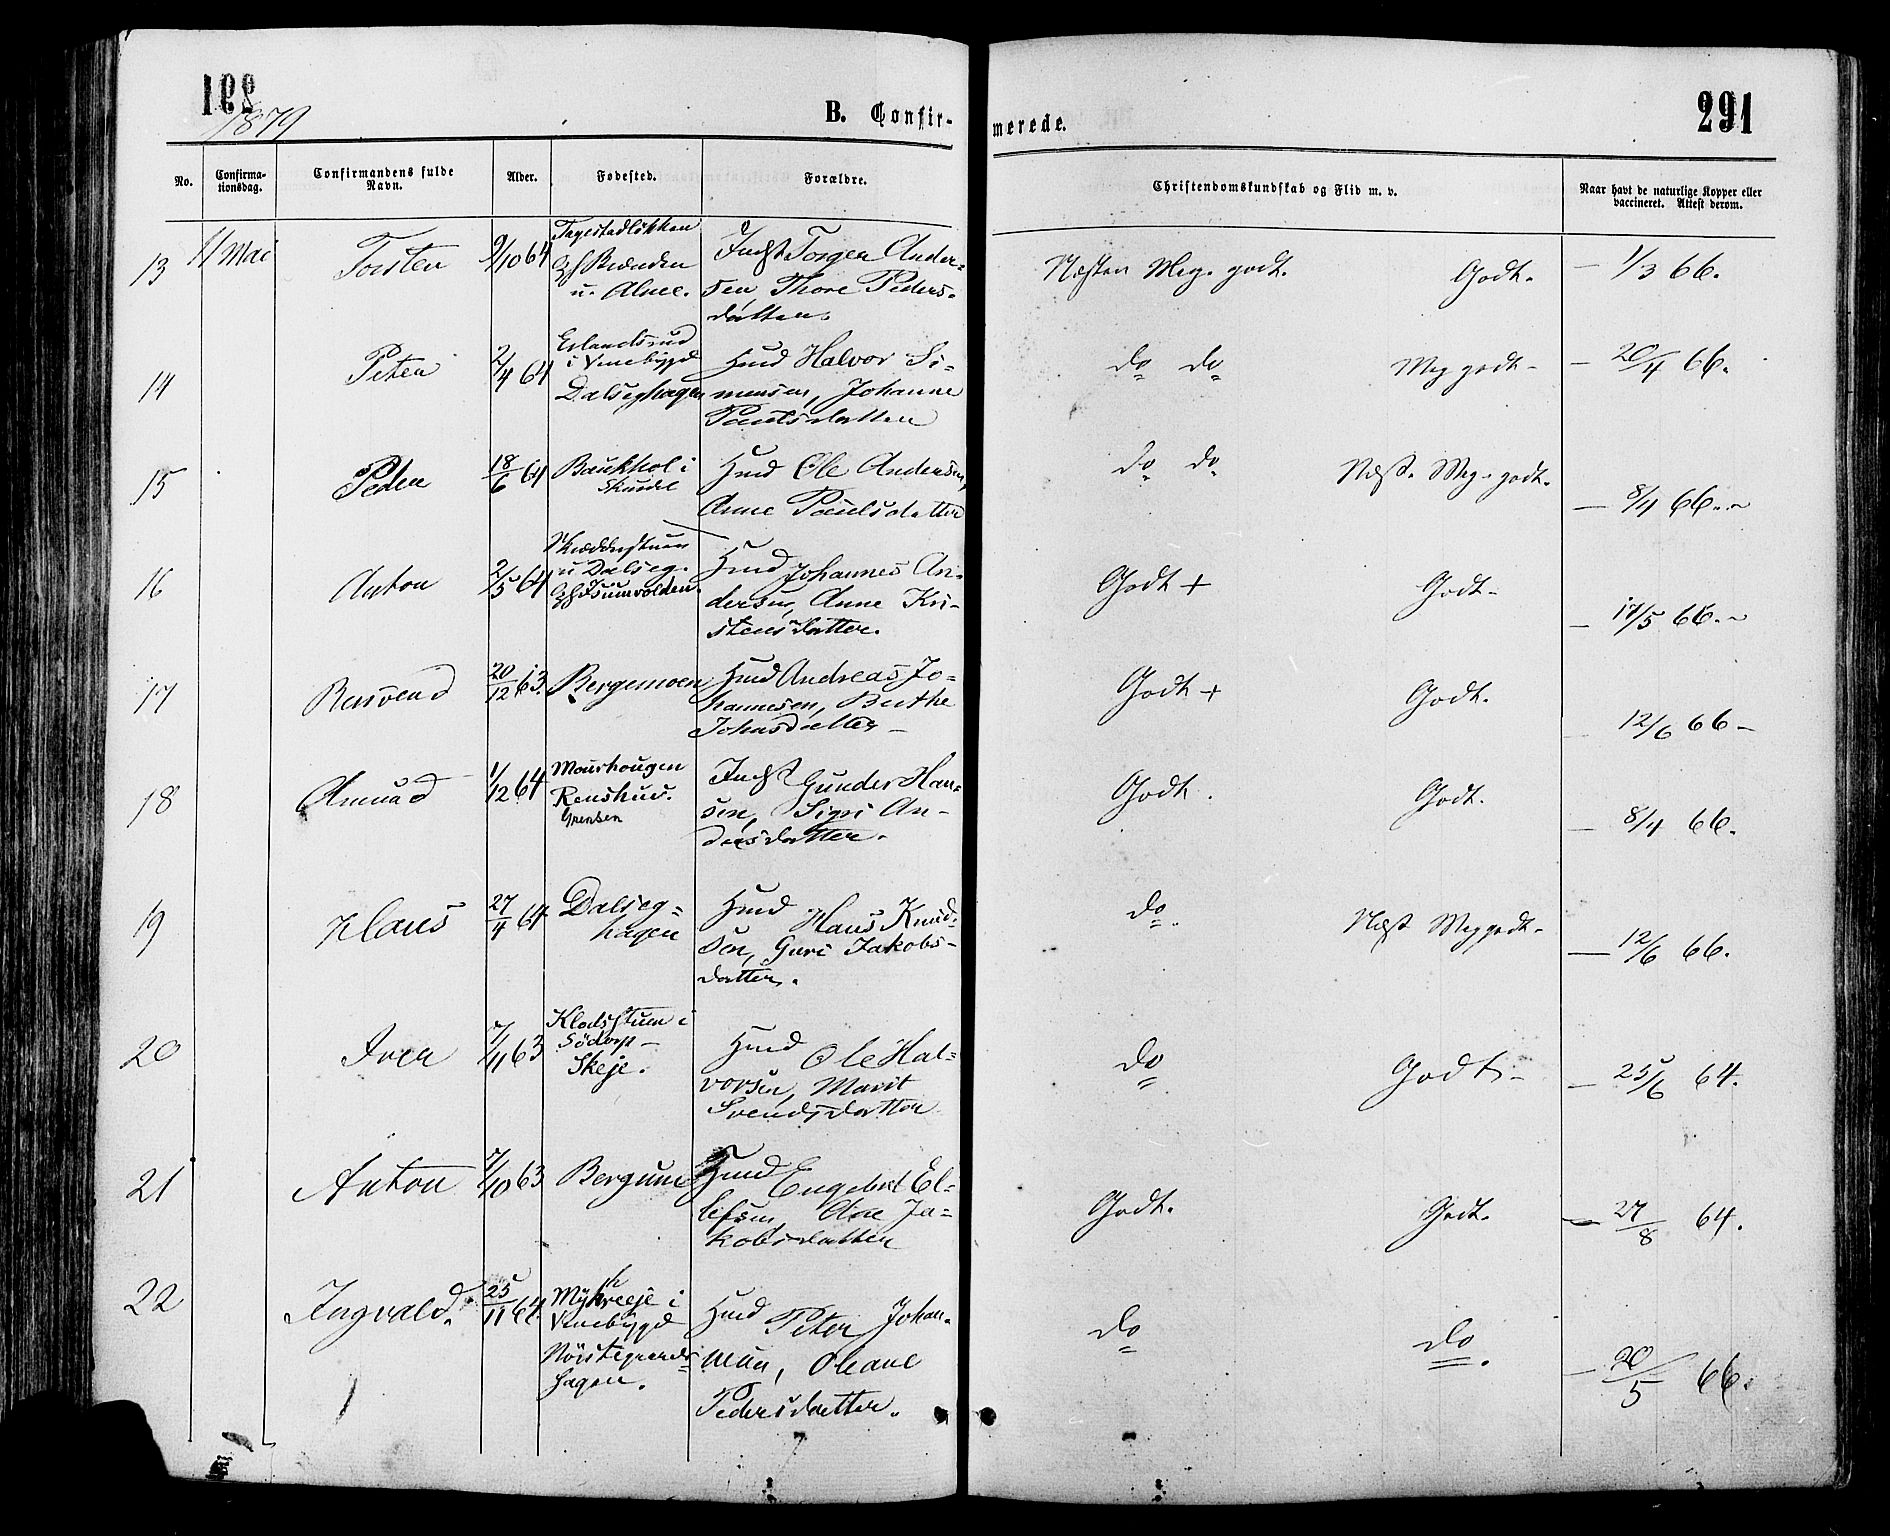 291
1879
B. Confir-
merede.
291
No.
Confirma-
tionsdag.
Confirmandens fulde
Navn.
Alder.
Fødested.
Forældre.
Christendomskundskab og Flid m. v.
Naar havt de naturlige Kopper eller
vaccineret. Attest derom.
13 11 Mai Torsten 9/10 64
u. Alnæ.
Indst Torger Ander-
sen Thore Peders-
datter.
Næsten Meg. godt. Godt. - 1/3 66.
14 Peter 2/4 64
i Vinebygd
Dalseghagen
Hmd Halvor Si-
mensen, Johanne
Poulsdatter
do do Meg godt - - 20/4 66.
15 Peder 18/6 64
Baukhol i
Hmd Ole Andersen,
Anne Poulsdatter
do do Næst. Meg. godt. - 8/4 66.
16 Anton 2/5 64
u Dalseg.
Hmd Johannes An-
dersen, Anne Kri-
stensdatter.
Godt + Godt - - 17/5 66.
17 20/12 63 Bergemoen
Hmd Andreas Jo-
hannesen, Berthe
Johnsdatter
Godt + Godt. 12/6 66 -
18 Amund 1/12 64
Mourhougen
Grensen
Indst Gunder Han-
sen, Sigri An-
dersdatter.
Godt. Godt. - 8/4 66.
19 Hans 27/4 64
Dalseg-
hagen
Hmd Hans Knud-
sen, Guri Jakobs-
datter.
do. Næst Meg godt - - 12/6 66.
20 Iver 7/11 63
Klodsstuen i
Södorp -
Skeje.
Hmd Ole Hal-
vorsen, Marit
Svendsdatter
do Godt - - 25/6 64.
21 Anton 7/10 63 Bergum
Hmd Engebret El-
lefsen, Ane Ja-
kobsdatter
Godt. Godt. - 27/8 64.
22 Ingvald. 25/11 64
i
Vinebygd
hagen.
Hmd Peter Johan-
nesen, Oleane
Pedersdatter.
do do. - 20/5 66.